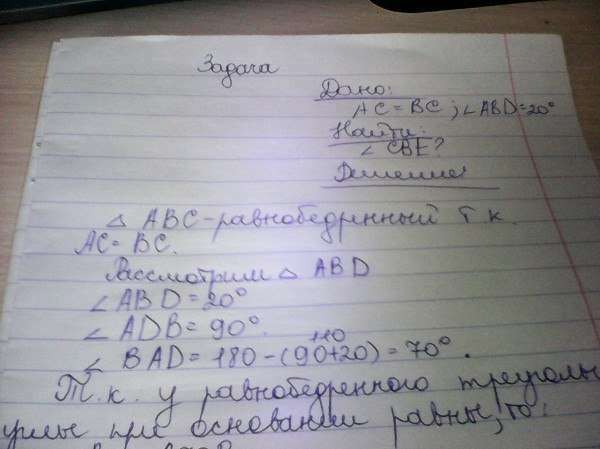 Задача
Дано:
AC = BC; ∠ABD=20°
Найти:
∠ CBE?
Решение:
△ ABC-равнобедренный т к
AC= BC.
Рассмотрим △ ABD
∠ ABD = 20°
∠ ADB = 90°.
110
∠ BAD = 180-(90+20) = 70°.
Т.к. у равнобедренного треуголь
углы при основании равны, то: